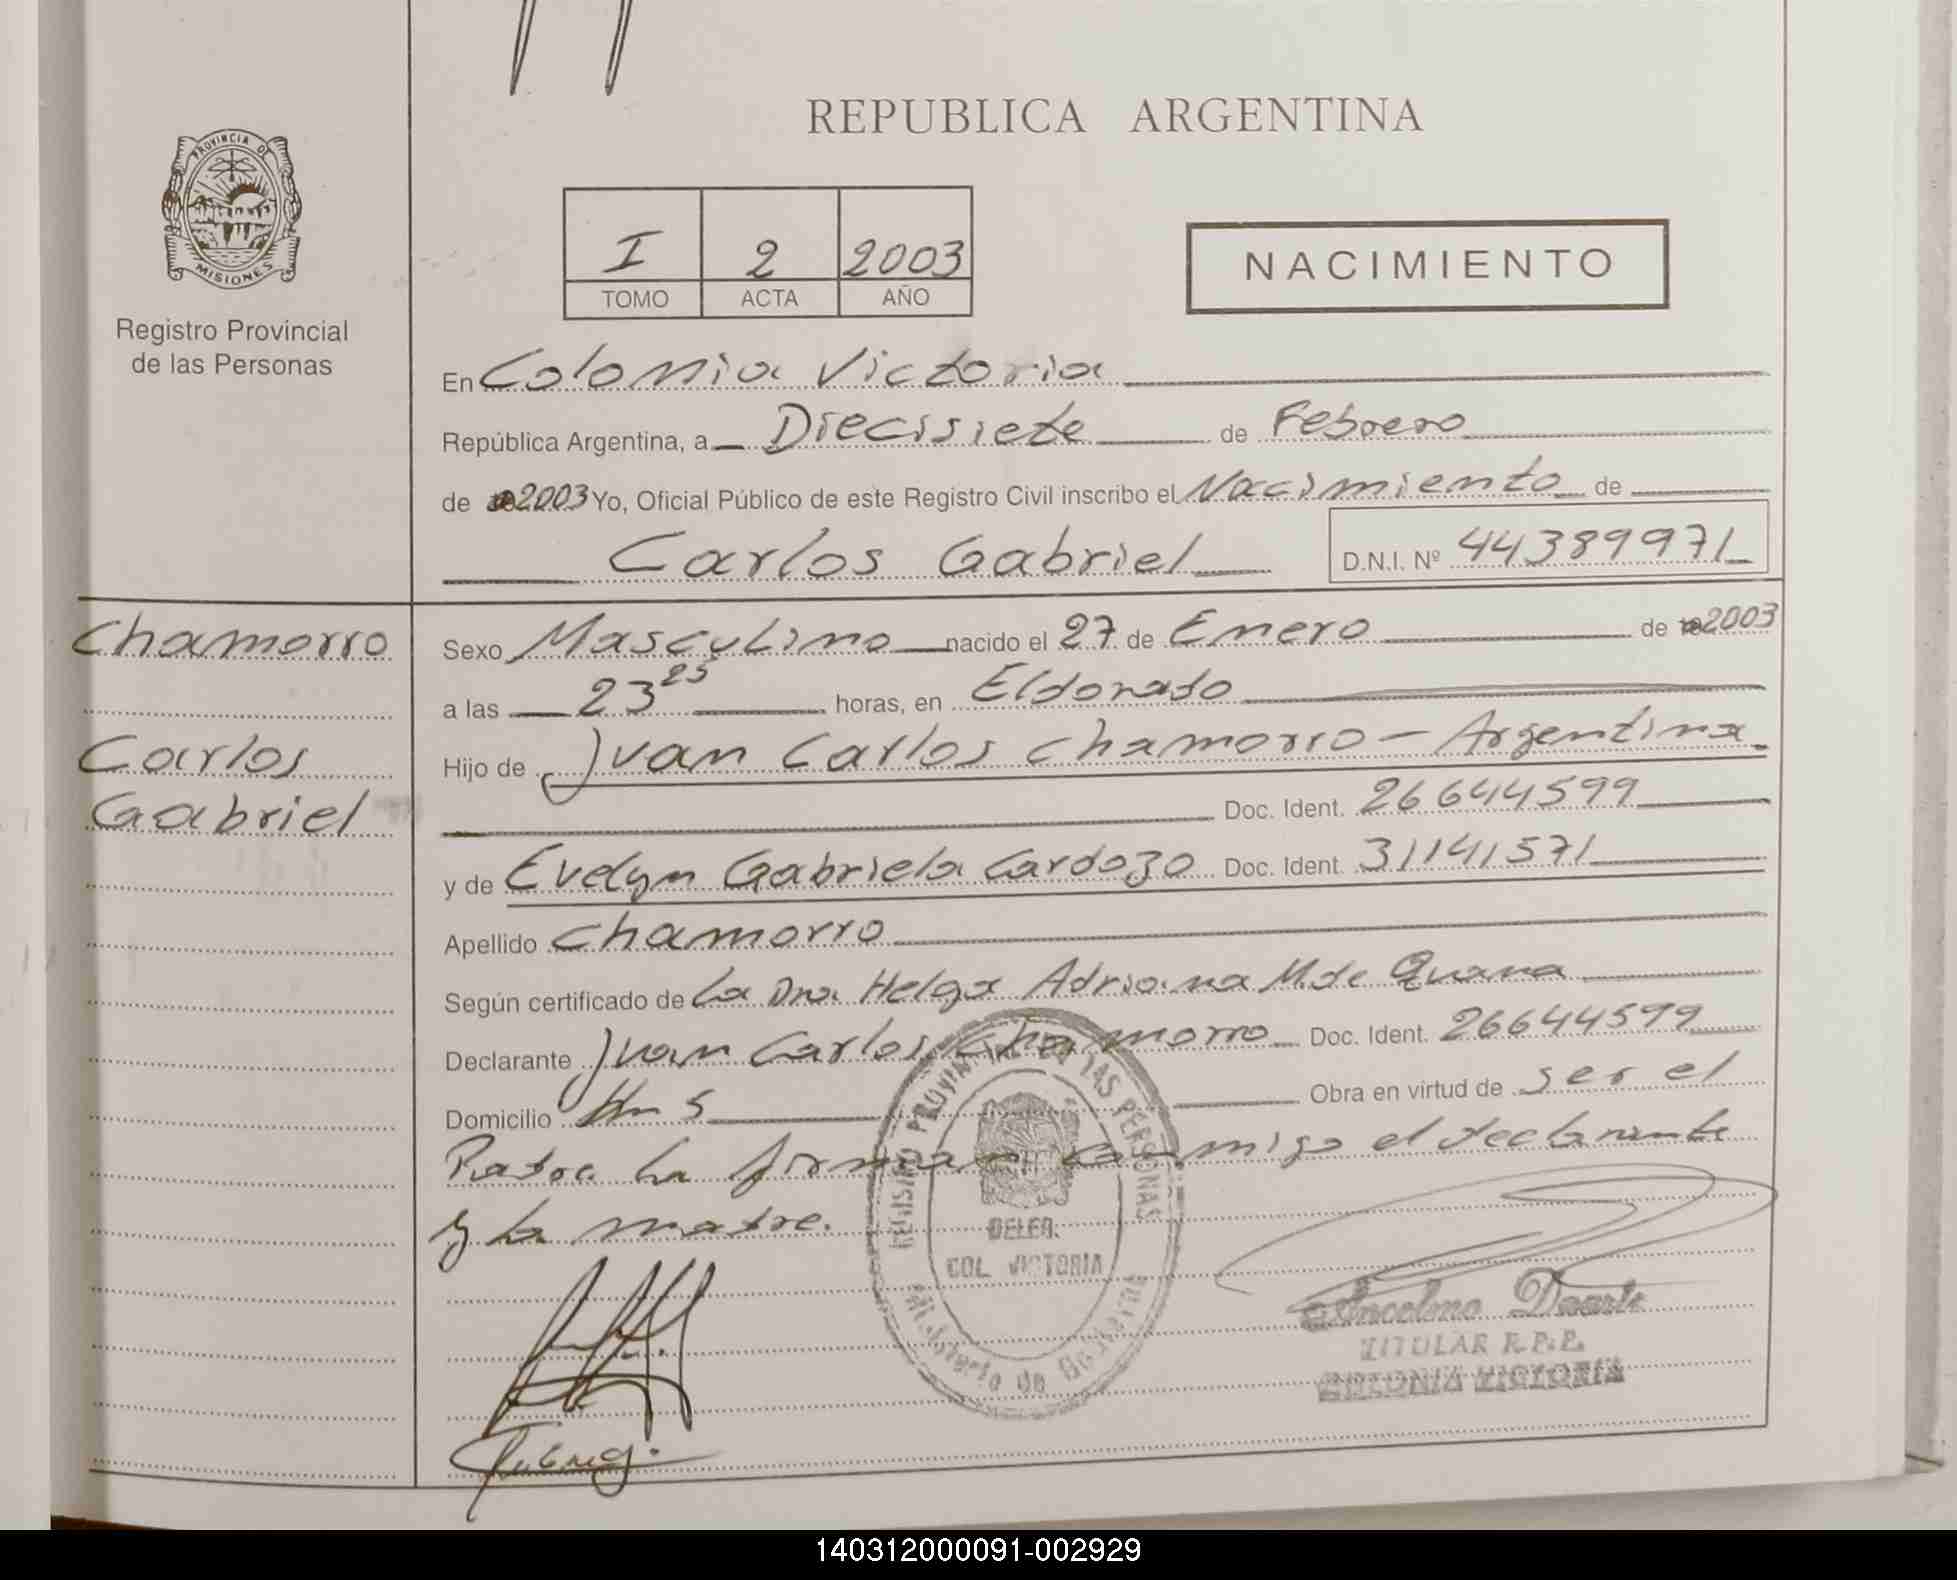 REPUBLICA ARGENTINA
PROVINCIA DE
MISIONES
Registro Provincial
de las Personas
I 2 2003
TOMO ACTA AÑO
NACIMIENTO
En Colonia Victoria
República Argentina, a Diecisiete de Febrero
de 2003 Yo, Oficial Público de este Registro Civil inscribo el Nacimiento de
Carlos Gabriel D.N.I. Nº 44389971
Chamorro
Carlos
Gabriel
Sexo Masculino nacido el 27 de Enero de 2003
a las 23 25 horas, en Eldorado
Hijo de Juan Carlos Chamorro - Argentina
Doc. Ident. 26644599
y de Evelyn Gabriela Cardozo Doc. Ident. 31141571
Apellido Chamorro
Según certificado de La Dra. Helga Adriana M. de Quana
Declarante Juan Carlos Chamorro Doc. Ident. 26644599
Domicilio Km 5 Obra en virtud de ser el
Padre. La firman conmigo el declarante
y la madre.
REGISTRO PROVINCIAL DE LAS PERSONAS
DELEG.
COL. VICTORIA
Ministerio de Gobierno
Ancelmo Duarte
TITULAR R.P.P.
COLONIA VICTORIA
140312000091-002929